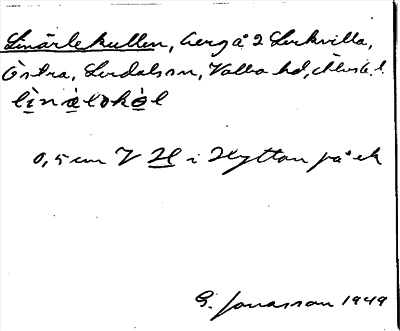 Linärlekullen, berg å 2 Lurkvilla,
Östra, Lurdalson, Valla hd, Älvsb. l.
lìnælokòl
0,5 cm V H i Hyttan på ek
G. Jonasson 1949